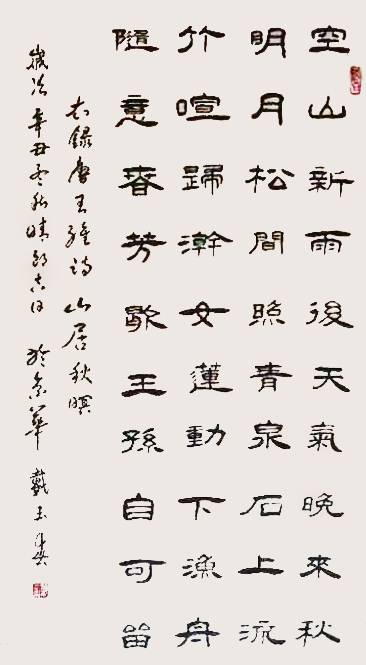 空山新雨後天氣晚來秋
明月松間照青泉石上流
竹喧歸澣女蓮動下漁舟
隨意春芳歇王孫自可留
右錄唐王維詩山居秋暝
歲次辛丑秋晴朗吉日於華戴玉